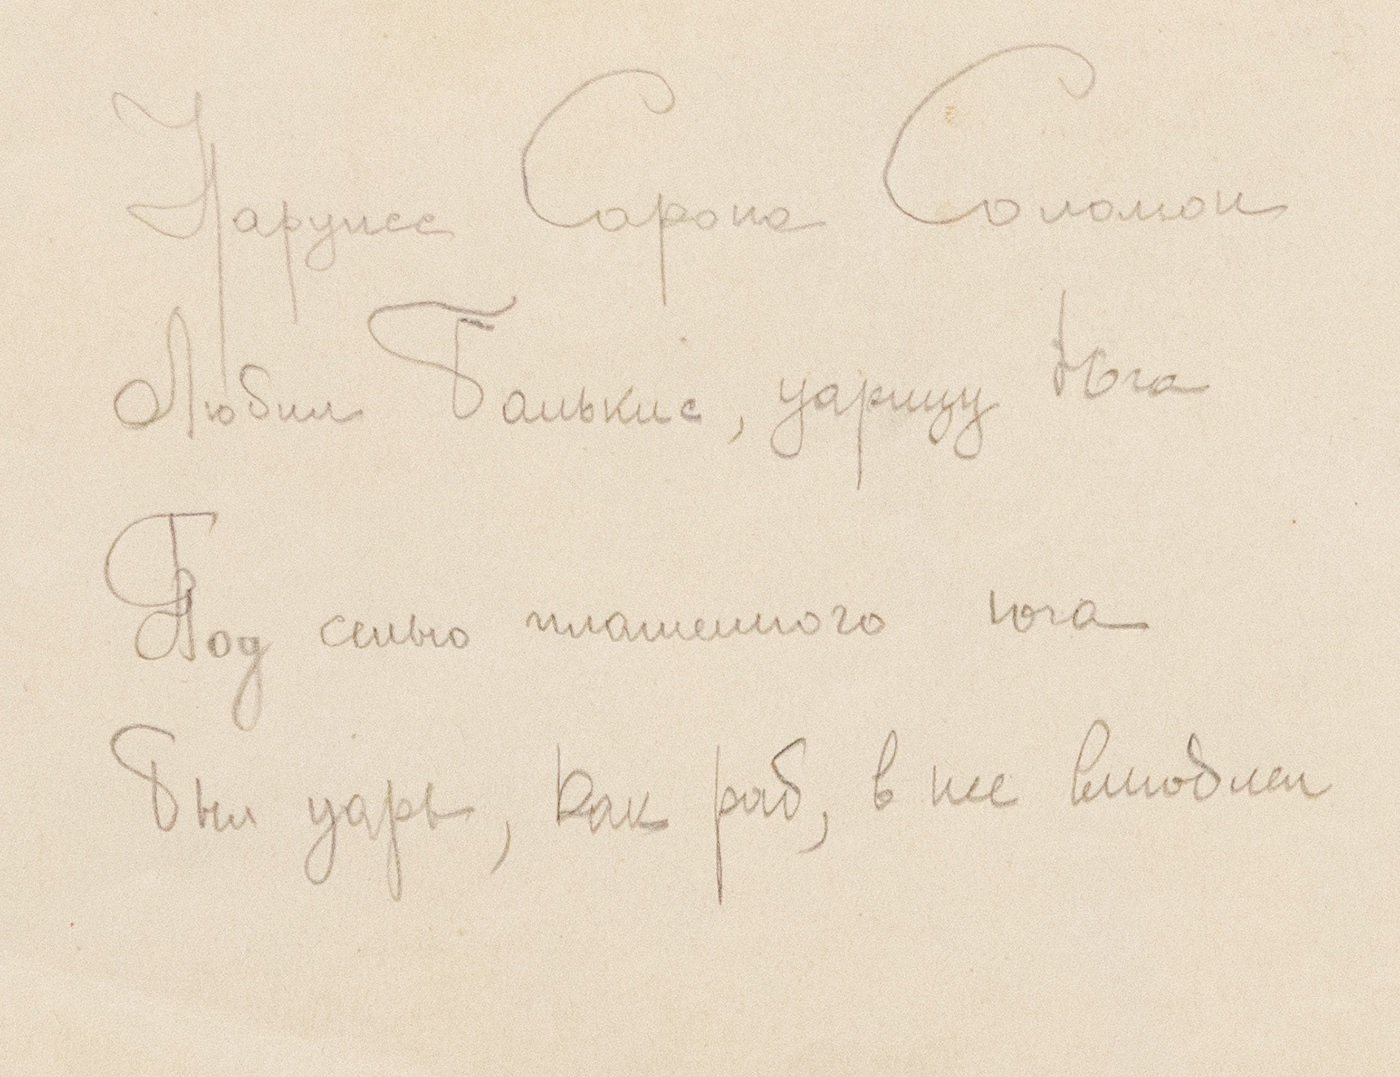 Нарцисс Сарона Соломон
Любил Балькис, царицу Юга
Под сенью пламенного юга
Был царь, как раб, в нее влюблен